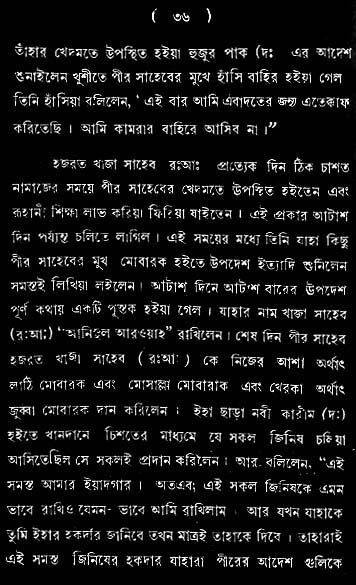 ( ৩৬ )
তাঁহার খেদমতে উপস্থিত হইয়া হুজুর পাক (দঃ এর আদেশ
শুনাইলেন খুশীতে পীর সাহেবের মুখে হাঁসি বাহির হইয়া গেল
তিনি হাঁসিয়া বলিলেন, ‘এই বার আমি এবাদতের জন্য এতেকাফ
করিতেছি । আমি কামরার বাহিরে আসিব না ।”
হজরত খাজা সাহেব রঃআঃ প্রত্যেক দিন ঠিক চাশত
নামাজের সময়ে পীর সাহেবের খেদমতে উপস্থিত হইতেন এবং
রূহানী শিক্ষা লাভ করিয়া ফিরিয়া যাইতেন । এই প্রকার আটাশ
দিন পর্য্যন্ত চলিতে লাগিল । এই সময়ের মধ্যে তিনি যাহা কিছু
পীর সাহেবের মুখ মোবারক হইতে উপদেশ ইত্যাদি শুনিলেন
সমস্তই লিখিয়া লইলেন । আটাশ দিনে আটাশ বারের উপদেশ
পূর্ণ কথায় একটি পুস্তক হইয়া গেল । যাহার নাম খাজা সাহেব
(রঃআঃ) “আনিসুল আরওয়াহ” রাখিলেন । শেষ দিন পীর সাহেব
হজরত খাজা সাহেব (রঃআঃ) কে নিজের আশা অর্থাৎ
লাঠি মোবারক এবং মোসাল্লা মোবারক এবং খেরকা অর্থাৎ
জুব্বা মোবারক দান করিলেন । ইহা ছাড়া নবী কারীম (দঃ)
হইতে খানদানে চিশতের মাধ্যমে যে সকল জিনিষ চলিয়া
আসিতেছিল সে সকলই প্রদান করিলেন । আর বলিলেন, “এই
সমস্ত আমার ইয়াদগার । অতএব; এই সকল জিনিষকে এমন
ভাবে রাখিও যেমন- ভাবে আমি রাখিলাম । আর যখন যাহাকে
তুমি ইহার হকদার জানিবে তখন মাত্রই তাহাকে দিবে । তাহারাই
এই সমস্ত জিনিষের হকদার যাহারা পীরের আদেশ গুলিকে